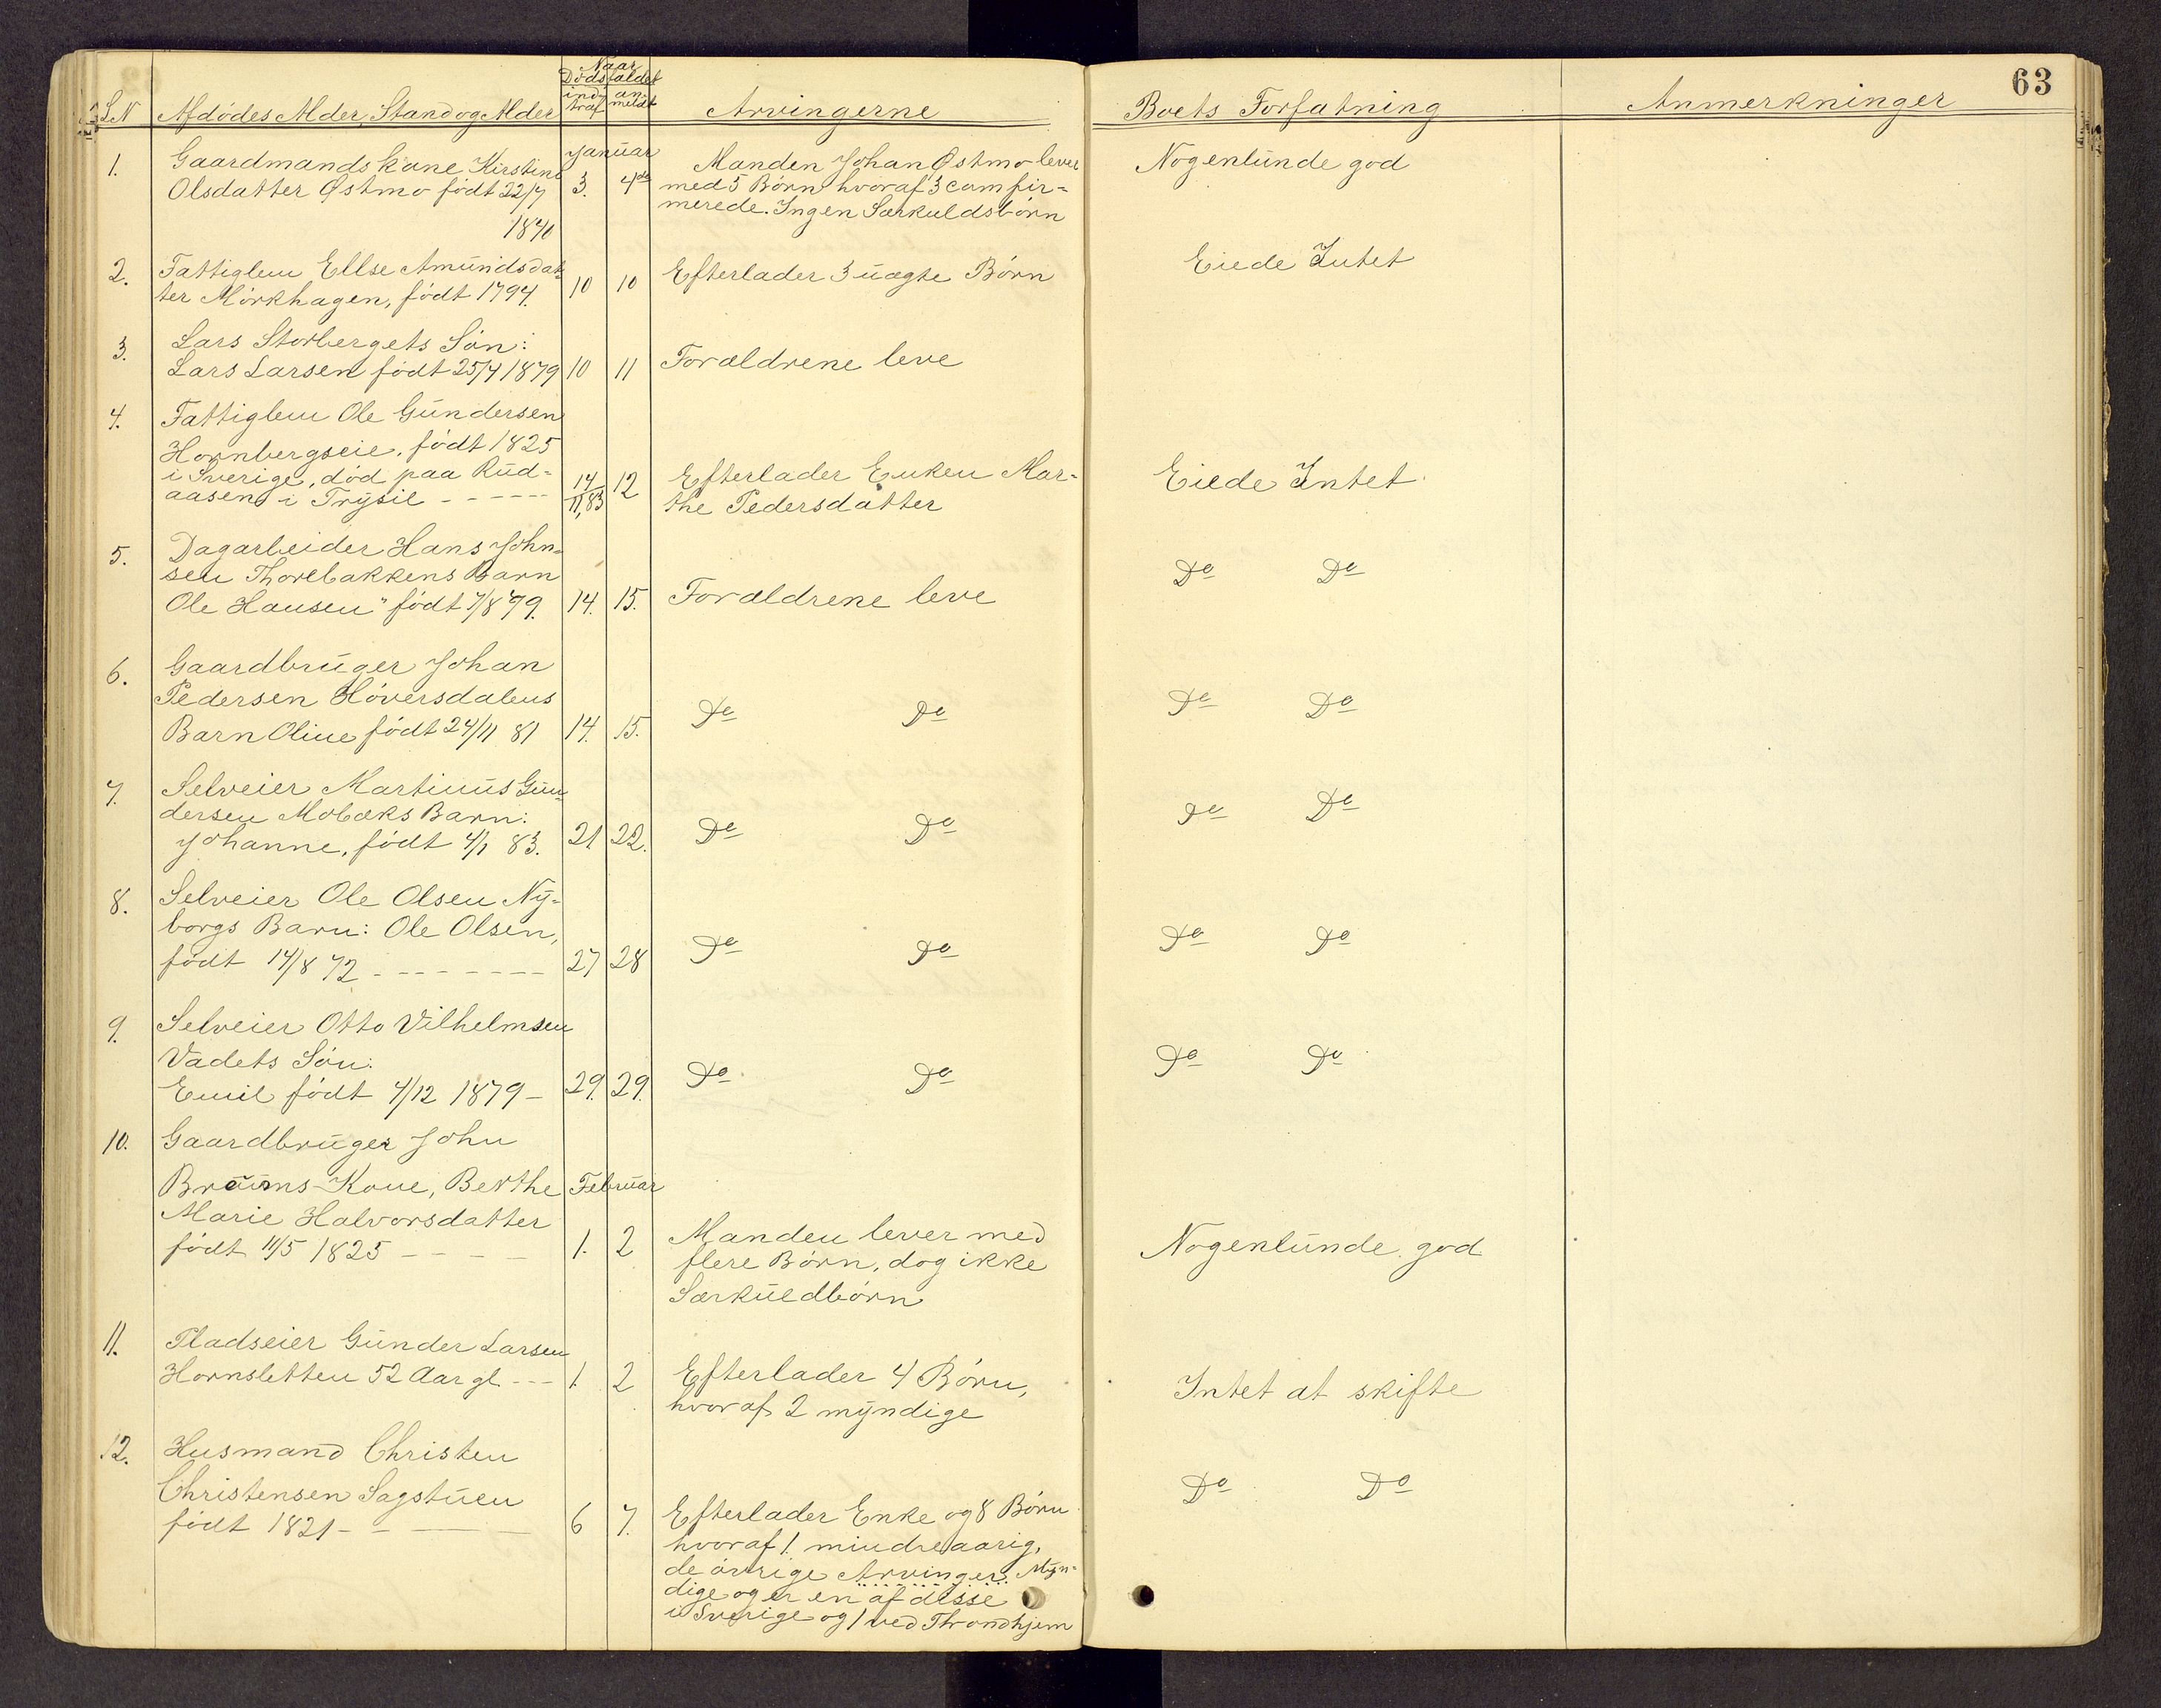 63
Naar
Dødsfaldet
L.N Afdødes Alder, Stand og Alder indtraf anmeldt Arvingerne Boets Forfatning Anmerkninger
Januar
1. Gaardmandskone Kirstine Manden Johan Østmo lever Nogenlunde god
Olsdatter Østmo født 22/7 3. 4de med 5 Børn hvoraf 3 comfir=
1840 merede. Ingen Særkuldsbørn
2. Fattiglem Ellse Amundsdat= Eiede Intet
ter Mörkhagen, født 1794. 10 10 Efterlader 3 uægte Børn
3. Lars Storbergets Søn:
Lars Larsen født 25/4 1879 10 11 Forældrene leve
4. Fattiglem Ole Gundersen
Hornbergseie, født 1825
i Sverige, død paa Rud= 14/11,83 12 Efterlader Enken Mar= Eiede Intet
aasen i Trysil - - - - - the Pedersdatter
5. Dagarbeider Hans John=
sen Thorebakkens Barn Do Do
Ole Hansen" født 7/8 79. 14. 15. Forældrene leve
6. Gaardbruger Johan
Pedersen Höversdalens Do Do Do Do
Barn Oline født 24/11 81 14. 15.
7. Selveier Martinus Gun=
dersen Mobæks Barn: Do Do Do Do
Johanne, født 4/1 83. 21 22.
8. Selveier Ole Olsen Ny=
borgs Barn: Ole Olsen, Do Do Do Do
født 14/8 72 - - - - - - - 27 28
9. Selveier Otto Vilhelmsen
Vadets Søn: Do Do
Emil født 4/12 1879 - 29. 29. Do Do
10. Gaardbruger John
Braums Kone, Berthe Februar
Marie Halvorsdatter
født 11/5 1825 - - - - 1. 2 Manden lever med Nogenlunde god
flere Børn, dog ikke
Særkuldbørn
11. Pladseier Gunder Larsen
Hornsletten 52 Aar gl. - - - 1. 2 Efterlader 4 Børn, Intet at skifte
hvoraf 2 myndige
12. Husmand Christen
Christensen Sagstuen Do Do
født 1821 - - - - 6 7. Efterlader Enke og 8 Børn
hvoraf 1 mindreaarig,
de övrige Arvinger Myn=
dige og er en af disse
i Sverige og 1 ved Throndhjem